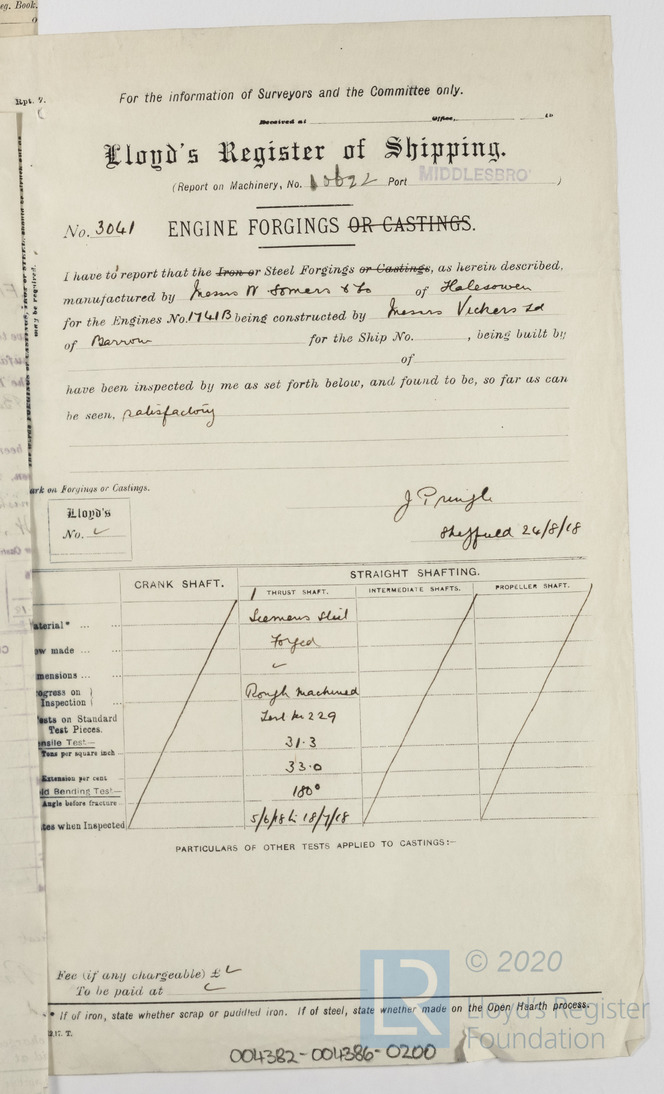 eg. Book.
Rpt. 7.
For the information of Surveyors and the Committee only.
Received at Office, 19
Lloyd's Register of Shipping.
(Report on Machinery, No. 10622 Port MIDDLESBRO' )
No. 3041 ENGINE FORGINGS OR CASTINGS.
I have to report that the Iron or Steel Forgings or Castings, as herein described,
manufactured by Messrs W Somers & Co of Halesowen
for the Engines No. 1741B being constructed by Messrs Vickers Ld
of Barrow for the Ship No. , being built by
of
have been inspected by me as set forth below, and found to be, so far as can
be seen, satisfactory
may be required.
ark on Forgings or Castings.
Lloyd's
No. ✓
J Pringle
Sheffield 24/8/18
CRANK SHAFT. STRAIGHT SHAFTING.
1 THRUST SHAFT. INTERMEDIATE SHAFTS. PROPELLER SHAFT.
aterial* ... ... Siemens Steel
ow made ... ... Forged
mensions ... ... ✓
ogress on } Inspection } ... Rough machined
ests on Standard Test Pieces. Test No 229
ensile Test—
Tons per square inch 31.3
Extension per cent 33.0
ld Bending Test—
Angle before fracture 180°
tes when Inspected 5/6/18 to 18/7/18
PARTICULARS OF OTHER TESTS APPLIED TO CASTINGS:—
Fee (if any chargeable) £ ✓
To be paid at ✓
* If of iron, state whether scrap or puddled iron. If of steel, state whether made on the Open Hearth process.
004382-004386-0200
LR
© 2020
Lloyd's Register
Foundation